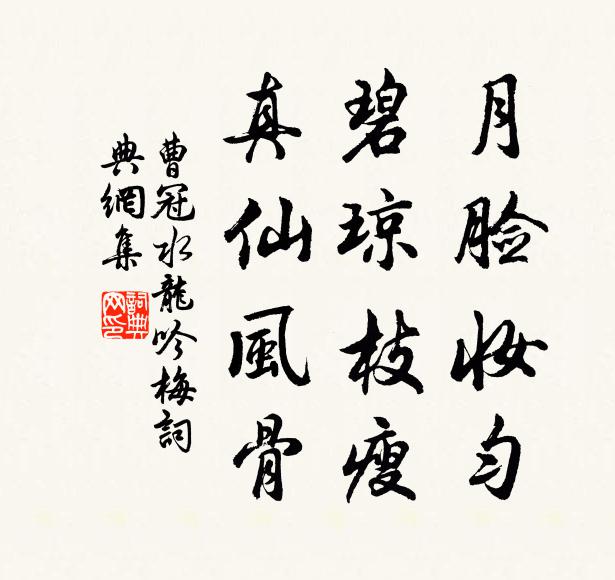 月脸妆匀
碧琼枝瘦
真仙風骨
曹冠水龍吟梅詞
典網集
詞典网印